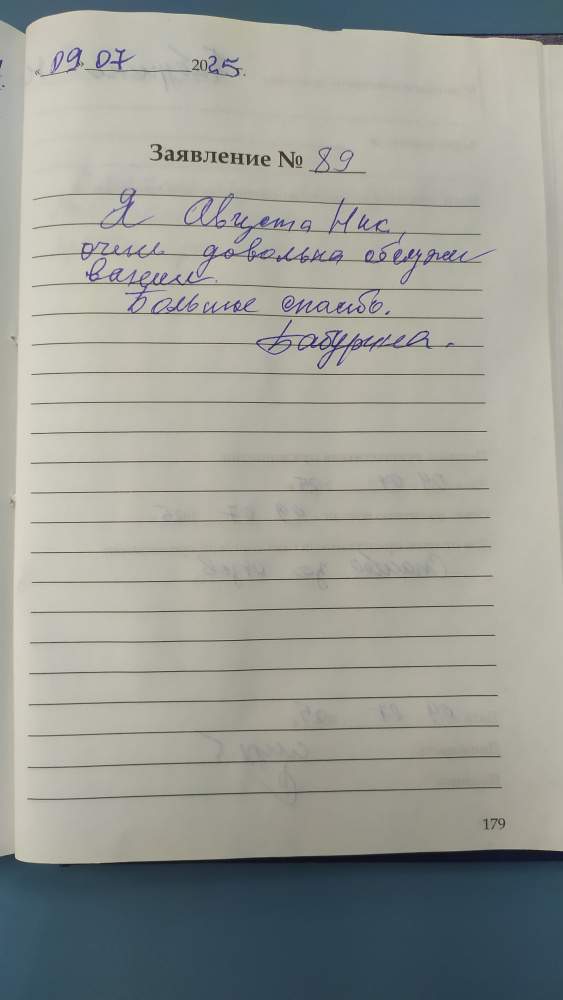 «09» 07 2025г.
Заявление № 89
Я Августа Ник,
очень довольна обслужи
ванием.
Большое спасибо.
Бабурина.
179